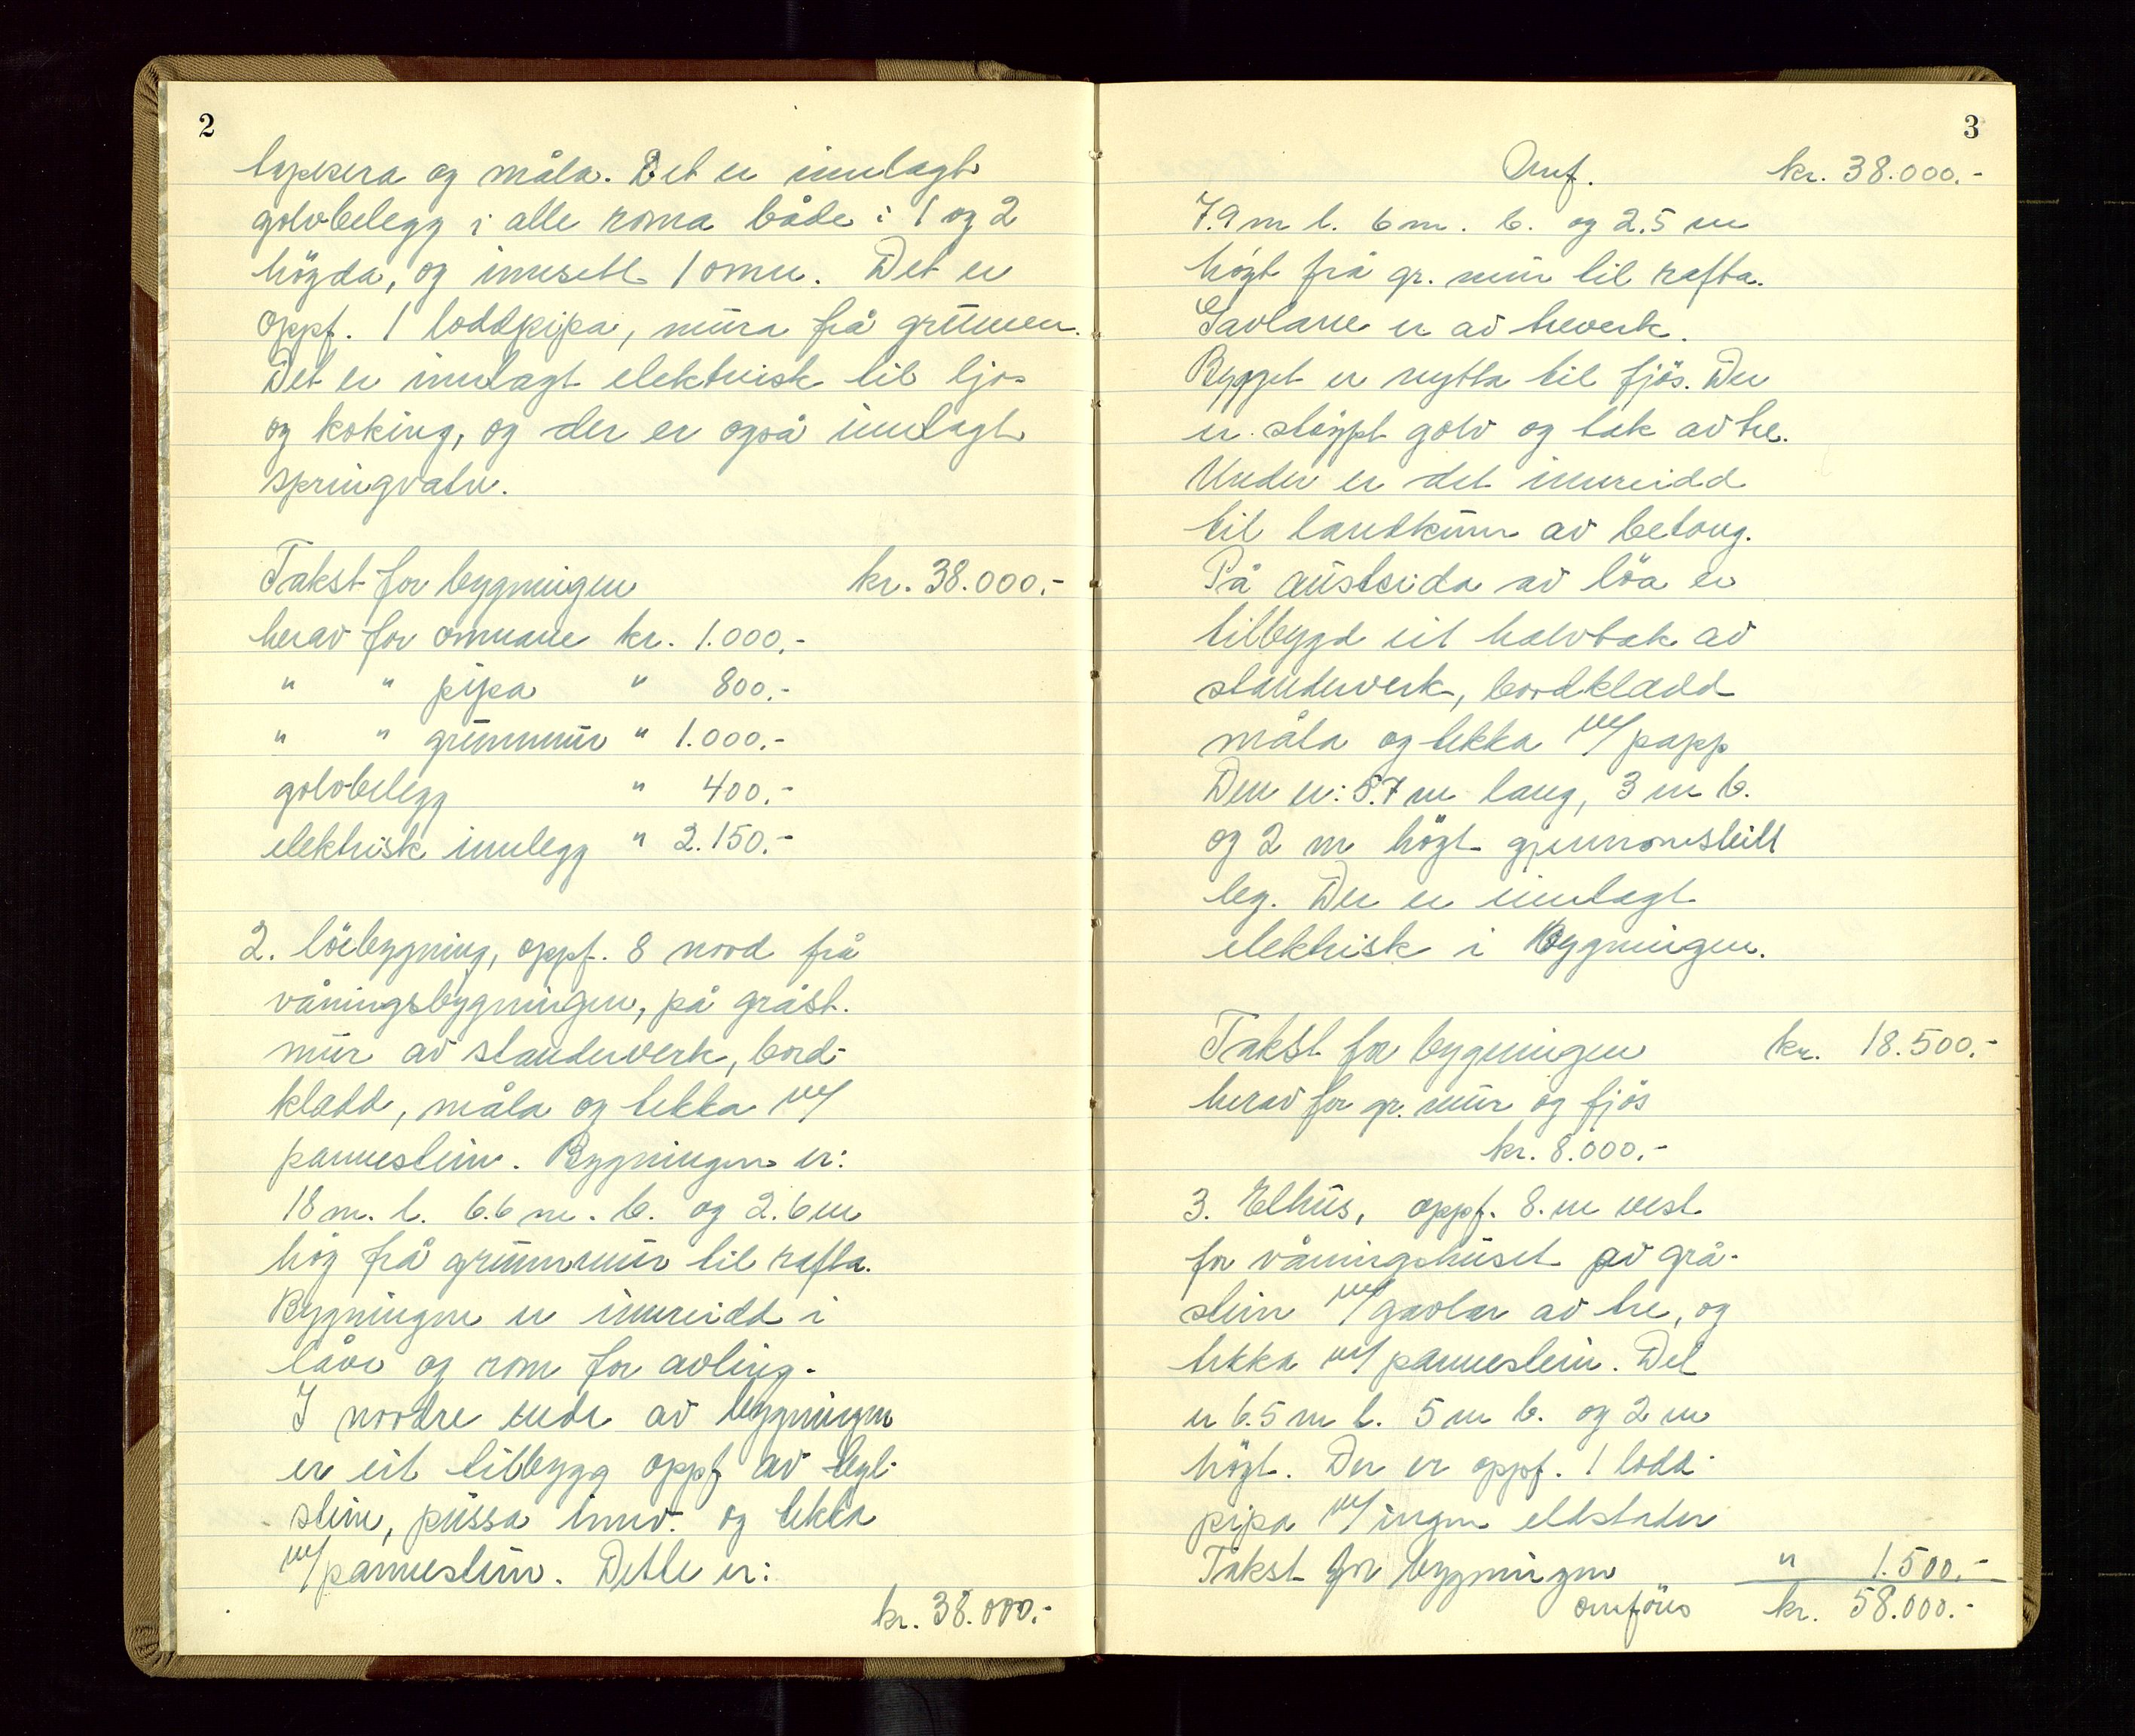 2
tapesera og måla. Det er innlagt
golvbelegg i alle roma både i 1 og 2
högda, og innsett 1 omn. Det er
oppf. 1 loddpipa, mura frå grunnen.
Det er innlagt elektrisk til ljos
og koking, og der er også innlagt
springvatn.
Takst for bygningen kr. 38.000.-
herav for omnane kr. 1.000.-
" " pipa " 800.-
" " grunnmur " 1.000.-
golvbelegg " 400.-
elektrisk innlegg " 2.150.-
2. löebygning, oppf. 8 nord frå
våningsbygningen, på gråst.
mur av standerverk, bord-
kledd, måla og tekka m/
pannestein. Bygningen er:
18 m. l. 6.6 m. b. og 2.6 m
hög frå grunnmur til rafta.
Bygningen er innreidd i
låve og rom for avling.
I nordre ende av bygningen
er eit tilbygg oppf av tegl-
stein, pussa innv. og tekka
m/pannestein. Dette er:
kr. 38.000.-
3
Omf. kr. 38.000.-
7.9 m l. 6 m. b. og 2.5 m
högt frå gr. mur til rafta.
Gavlane er av treverk.
Bygget er nytta til fjös. Der
er stöypt golv og tak av tre.
Under er det innreidd
til landkum av betong.
På austsida av löa er
tilbygd eit halvtak av
standerverk, bordkledd
måla og tekka m/papp
Den er: 5.7 m lang, 3 m b.
og 2 m högt gjennomsnitt
leg. Der er innlagt
elektrisk i bygningen.
Takst for bygningen kr. 18.500.-
herav for gr. mur og fjös
kr. 8.000.-
3. Elhus, oppf. 8. m vest
for våningshuset av grå-
stein m/gavlar av tre, og
tekka m/pannestein. Det
er 6.5 m l. 5 m b. og 2 m
högt. Der er oppf. 1 lodd-
pipa m/ingen eldstader
Takst for bygningen " 1.500.-
omföres kr. 58.000.-